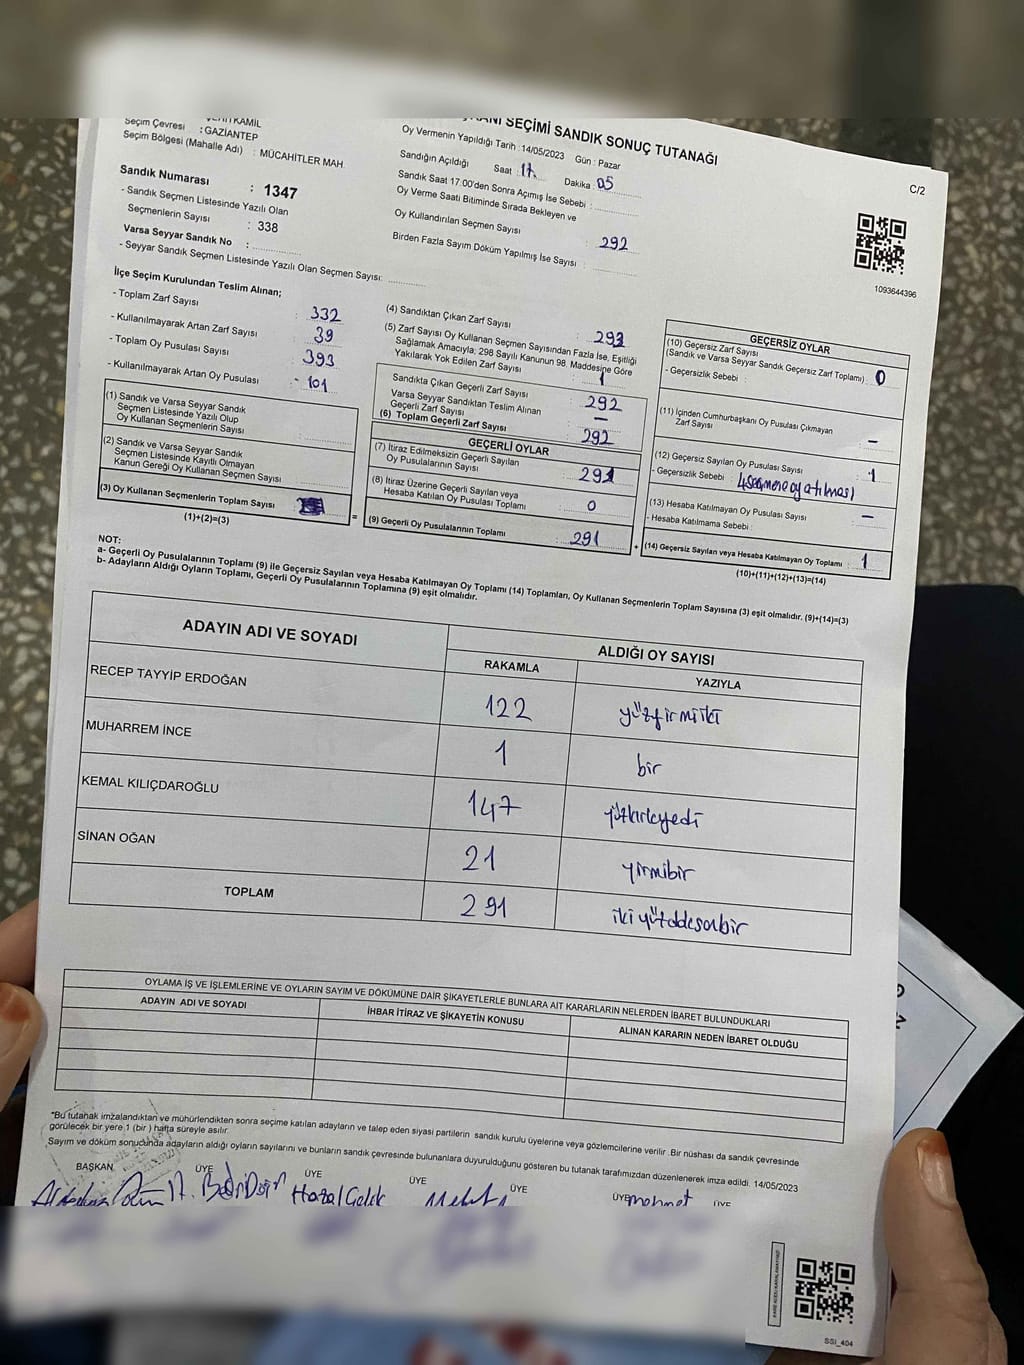 SEÇİMİ SANDIK SONUÇ TUTANAĞI
C/2
Seçim Çevresi
: GAZİANTEP
Seçim Bölgesi (Mahalle Adı) : MÜCAHİTLER MAH.
Oy Vermenin Yapıldığı Tarih :14/05/2023 Gün : Pazar
Sandığın Açıldığı Saat : 17. Dakika : 05
Sandık Saat 17.00'den Sonra Açımış İse Sebebi :
Oy Verme Saati Bitiminde Sırada Bekleyen ve
Oy Kullandırılan Seçmen Sayısı : 292
Birden Fazla Sayım Döküm Yapılmış İse Sayısı :
1093644396
Sandık Numarası : 1347
- Sandık Seçmen Listesinde Yazılı Olan
Seçmenlerin Sayısı : 338
Varsa Seyyar Sandık No :
- Seyyar Sandık Seçmen Listesinde Yazılı Olan Seçmen Sayısı:
İlçe Seçim Kurulundan Teslim Alınan;
- Toplam Zarf Sayısı : 332
- Kullanılmayarak Artan Zarf Sayısı : 39
- Toplam Oy Pusulası Sayısı : 393
- Kullanılmayarak Artan Oy Pusulası : 101
(1) Sandık ve Varsa Seyyar Sandık
Seçmen Listesinde Yazılı Olup
Oy Kullanan Seçmenlerin Sayısı :
(2) Sandık ve Varsa Seyyar Sandık
Seçmen Listesinde Kayıtlı Olmayan
Kanun Gereği Oy Kullanan Seçmen Sayısı :
(3) Oy Kullanan Seçmenlerin Toplam Sayısı :
(1)+(2)=(3)
(4) Sandıktan Çıkan Zarf Sayısı : 293
(5) Zarf Sayısı Oy Kullanan Seçmen Sayısından Fazla İse, Eşitliği
Sağlamak Amacıyla; 298 Sayılı Kanunun 98. Maddesine Göre
Yakılarak Yok Edilen Zarf Sayısı : 1
Sandıkta Çıkan Geçerli Zarf Sayısı : 292
Varsa Seyyar Sandıktan Teslim Alınan
Geçerli Zarf Sayısı : –
(6) Toplam Geçerli Zarf Sayısı : 292
GEÇERLİ OYLAR
(7) İtiraz Edilmeksizin Geçerli Sayılan
Oy Pusulalarının Sayısı : 291
(8) İtiraz Üzerine Geçerli Sayılan veya
Hesaba Katılan Oy Pusulası Toplamı : 0
= (9) Geçerli Oy Pusulalarının Toplamı : 291
GEÇERSİZ OYLAR
(10) Geçersiz Zarf Sayısı
(Sandık ve Varsa Seyyar Sandık Geçersiz Zarf Toplamı) : 0
- Geçersizlik Sebebi :
(11) İçinden Cumhurbaşkanı Oy Pusulası Çıkmayan
Zarf Sayısı : –
(12) Geçersiz Sayılan Oy Pusulası Sayısı : 1
- Geçersizlik Sebebi :
(13) Hesaba Katılmayan Oy Pusulası Sayısı : –
- Hesaba Katılmama Sebebi :
+ (14) Geçersiz Sayılan veya Hesaba Katılmayan Oy Toplamı : 1
(10)+(11)+(12)+(13)=(14)
NOT:
a- Geçerli Oy Pusulalarının Toplamı (9) ile Geçersiz Sayılan veya Hesaba Katılmayan Oy Toplamı (14) Toplamları, Oy Kullanan Seçmenlerin Toplam Sayısına (3) eşit olmalıdır. (9)+(14)=(3)
b- Adayların Aldığı Oyların Toplamı, Geçerli Oy Pusulalarının Toplamına (9) eşit olmalıdır.
ADAYIN ADI VE SOYADI
ALDIĞI OY SAYISI
RAKAMLA YAZIYLA
RECEP TAYYİP ERDOĞAN 122 yüzyirmiiki
MUHARREM İNCE 1 bir
KEMAL KILIÇDAROĞLU 147 yüzkırkyedi
SİNAN OĞAN 21 yirmibir
TOPLAM 291
OYLAMA İŞ VE İŞLEMLERİNE VE OYLARIN SAYIM VE DÖKÜMÜNE DAİR ŞİKAYETLERLE BUNLARA AİT KARARLARIN NELERDEN İBARET BULUNDUKLARI
ADAYIN ADI VE SOYADI İHBAR İTİRAZ VE ŞİKAYETİN KONUSU ALINAN KARARIN NEDEN İBARET OLDUĞU
*Bu tutanak imzalandıktan ve mühürlendikten sonra seçime katılan adayların ve talep eden siyasi partilerin sandık kurulu üyelerine veya gözlemcilerine verilir .Bir nüshası da sandık çevresinde
görülecek bir yere 1 (bir ) hafta süreyle asılır.
Sayım ve döküm sonucunda adayların aldığı oyların sayılarını ve bunların sandık çevresinde bulunanlara duyurulduğunu gösteren bu tutanak tarafımızdan düzenlenerek imza edildi. 14/05/2023
BAŞKAN ÜYE ÜYE ÜYE ÜYE ÜYE ÜYE
Hazal Gelik
mehmet
SSİ_404